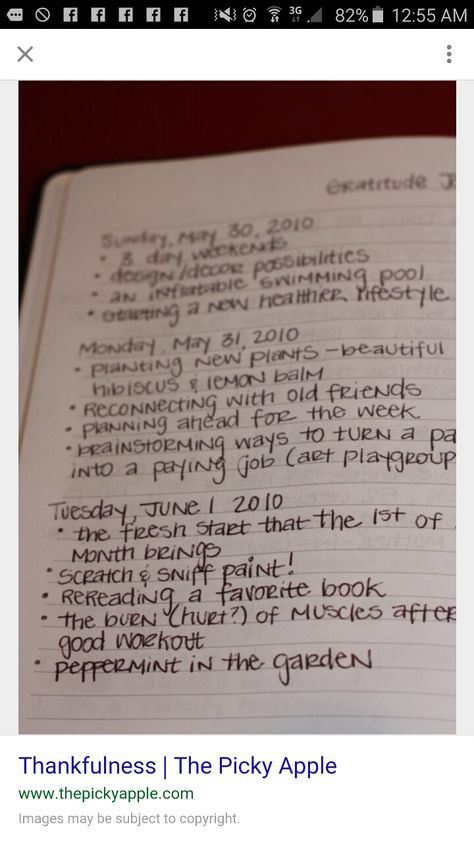 3G 82% 12:55 AM
Gratitude J
Sunday, May 30, 2010
• 3 day weekends
• design/decor possibilities
• an inflatable swimming pool
• starting a new healthier lifestyle
Monday, May 31, 2010
• planting new plants - beautiful
hibiscus & lemon balm
• reconnecting with old friends
• planning ahead for the week
• brainstorming ways to turn a pa
into a paying job (art playgroup
Tuesday, June 1 2010
• the fresh start that the 1st of
month brings
• scratch & sniff paint!
• rereading a favorite book
• the burn (hurt?) of muscles after
good workout
• peppermint in the garden
Thankfulness | The Picky Apple
www.thepickyapple.com
Images may be subject to copyright.